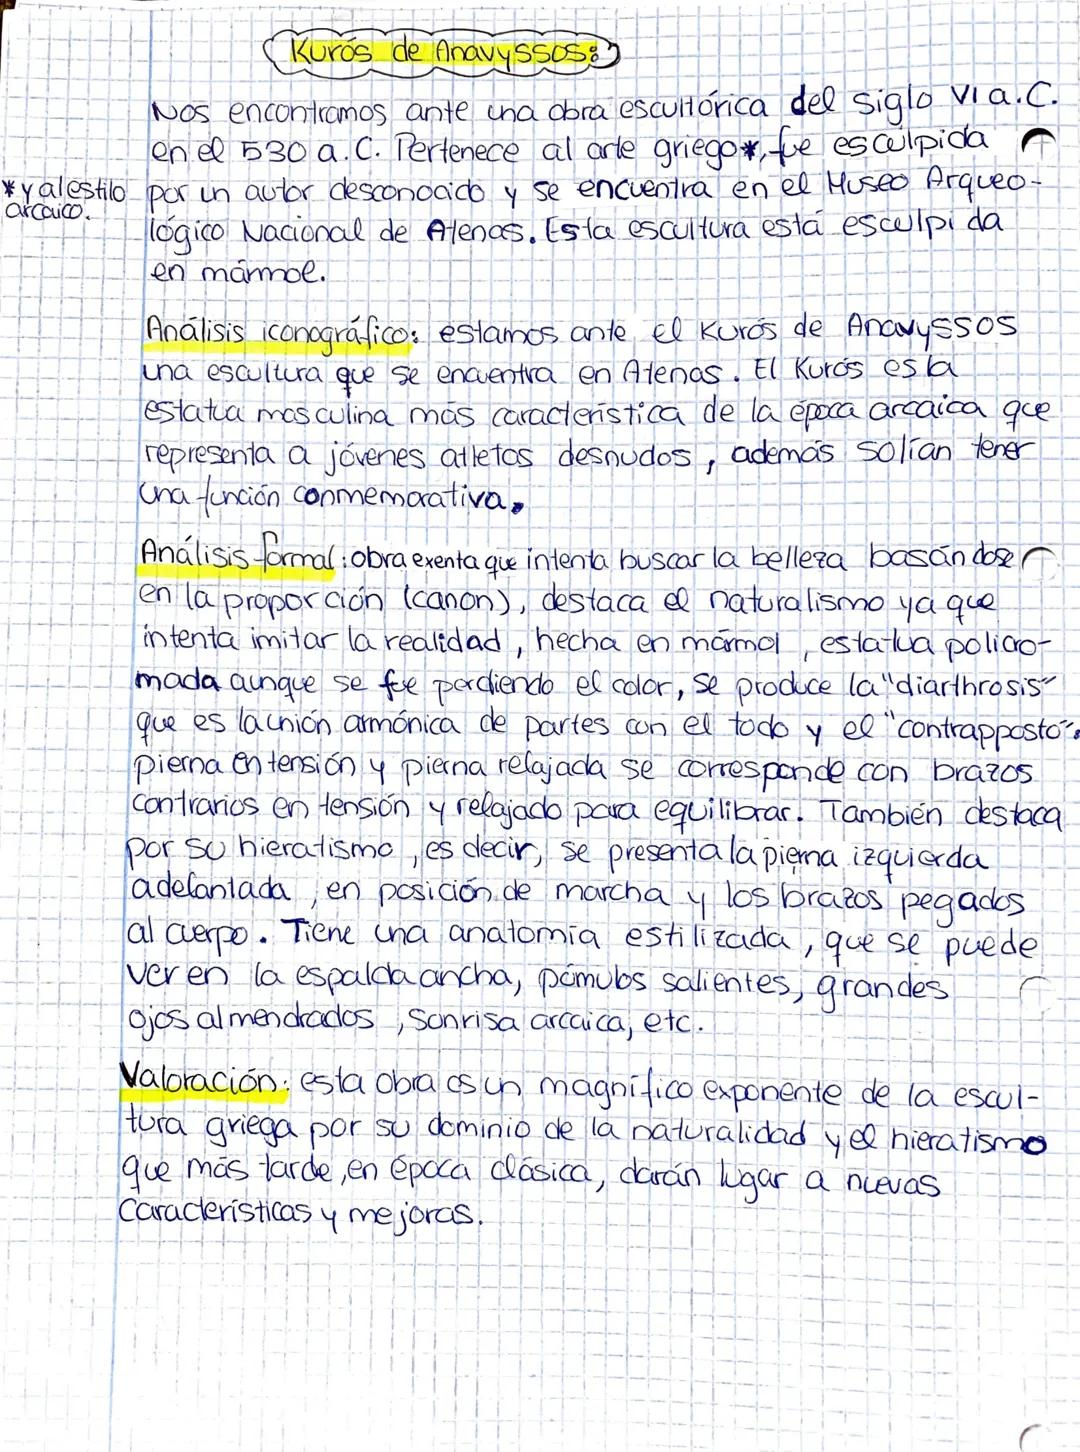 Kurós de Anavyssos:
Nos encontramos ante una obra escultórica del siglo VI a.C.
en el 530 a.C. Pertenece al arte griego*, fue esculpida
* y al estilo arcaico.
por un autor desconocido y se encuentra en el Museo Arqueo-
lógico Nacional de Atenas. Esta escultura está esculpida
en mármol.
Análisis iconográfico: estamos ante el Kurós de Anavyssos
una escultura que se encuentra en Atenas. El Kurós es la
estatua masculina más característica de la época arcaica que
representa a jóvenes atletas desnudos, además solían tener
una función conmemorativa.
Análisis formal: obra exenta que intenta buscar la belleza basándose
en la proporción (canon), destaca el naturalismo ya que
intenta imitar la realidad, hecha en mármol, estatua policro-
mada aunque se fue perdiendo el color, se produce la "diarthrosis"
que es la unión armónica de partes con el todo y el "contrapposto":
pierna en tensión y pierna relajada se corresponde con brazos
contrarios en tensión y relajado para equilibrar. También destaca
por su hieratismo, es decir, se presenta la pierna izquierda
adelantada, en posición de marcha y los brazos pegados
al cuerpo. Tiene una anatomía estilizada, que se puede
ver en la espalda ancha, pómulos salientes, grandes
ojos almendrados, sonrisa arcaica, etc.
Valoración: esta obra es un magnífico exponente de la escul-
tura griega por su dominio de la naturalidad y el hieratismo
que más tarde, en época clásica, darán lugar a nuevas
características y mejoras.